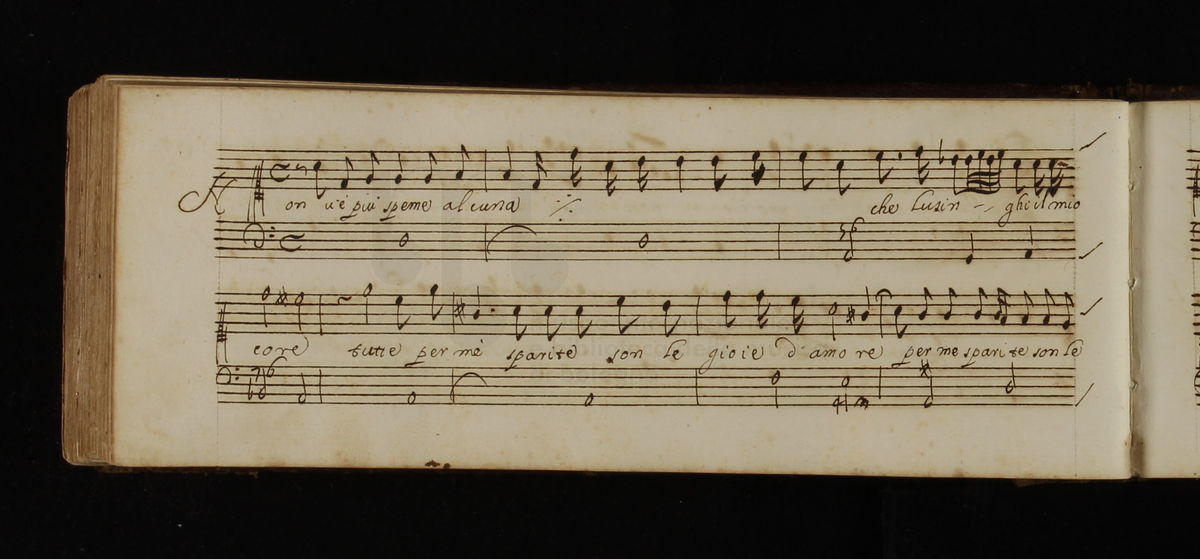 Non v'è più speme alcuna che lusin - - ghi il mio
core tutte per mè sparite son le gioie d'amore per me sparite son le